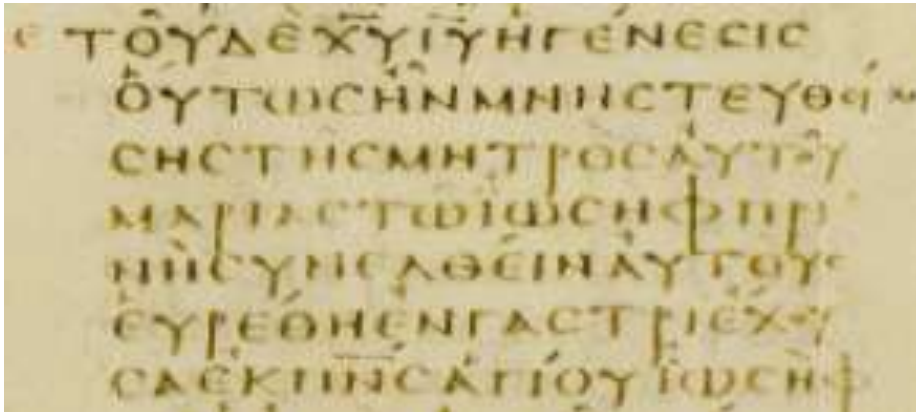 ΤΟΥΔΕΧ̅Υ̅Ι̅Υ̅ΗΓΕΝΕϹΙϹ
ΟΥΤΩϹΗΝΜΝΗϹΤΕΥΘΕΙ
ϹΗϹΤΗϹΜΗΤΡΟϹΑΥΤΟΥ
ΜΑΡΙΑϹΤΩΙΩϹΗΦΠΡΙ
ΝΗϹΥΝΕΛΘΕΙΝΑΥΤΟΥϹ
ΕΥΡΕΘΗΕΝΓΑϹΤΡΙΕΧΟΥ
ϹΑΕΚΠ̅Ν̅Ϲ̅ΑΓΙΟΥΙΩϹΗΦ